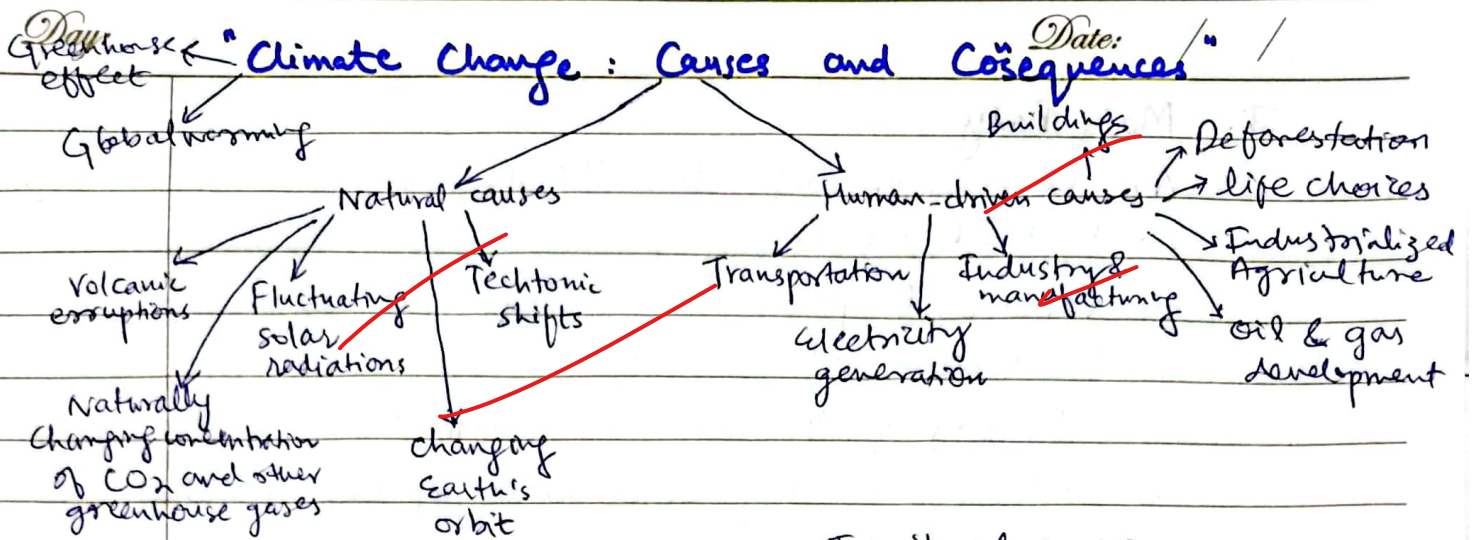 Day:
Date: / /
Greenhouse
effect
"Climate Change : Causes and Cosequences"
Global warming
Natural causes
Volcanic
erruptions
Fluctuating
solar
radiations
Techtonic
shifts
Naturally
Changing concentration
of CO2 and other
greenhouse gases
changing
Earth's
orbit
Human-driven causes
Buildings
Deforestation
life choices
Industrialized
Agriculture
Oil & gas
development
Transportation
Industry &
manufacturing
Electricity
generation